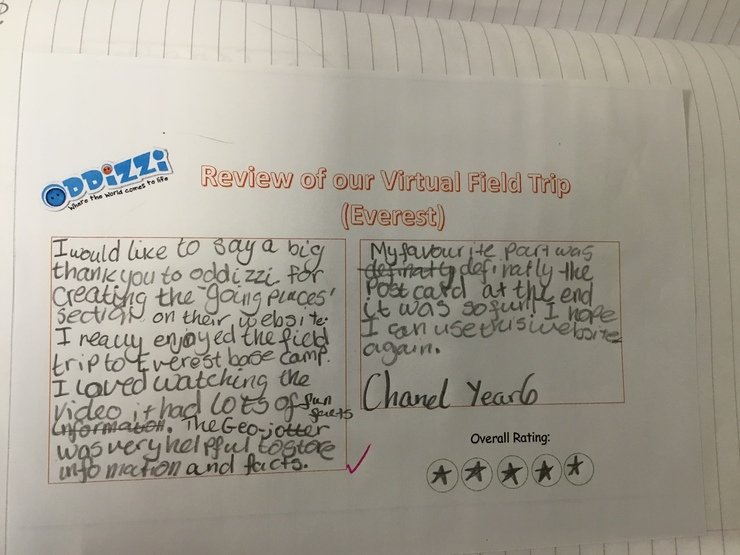 ODDiZZi
Where the world comes to life
Review of our Virtual Field Trip
(Everest)
I would like to say a big
thank you to oddizzi for
Creating the "going places'
section on their website.
I really enjoyed the field
trip to Everest base camp.
I loved watching the
video it had lots of fun
facts
information. The Geo-jotter
was very helpful to store
infomation and facts.
My favourite part was
definatly definatly the
Post card at the end
it was so fun! I hope
I can use this website
again.
Chanel Year 6
Overall Rating: